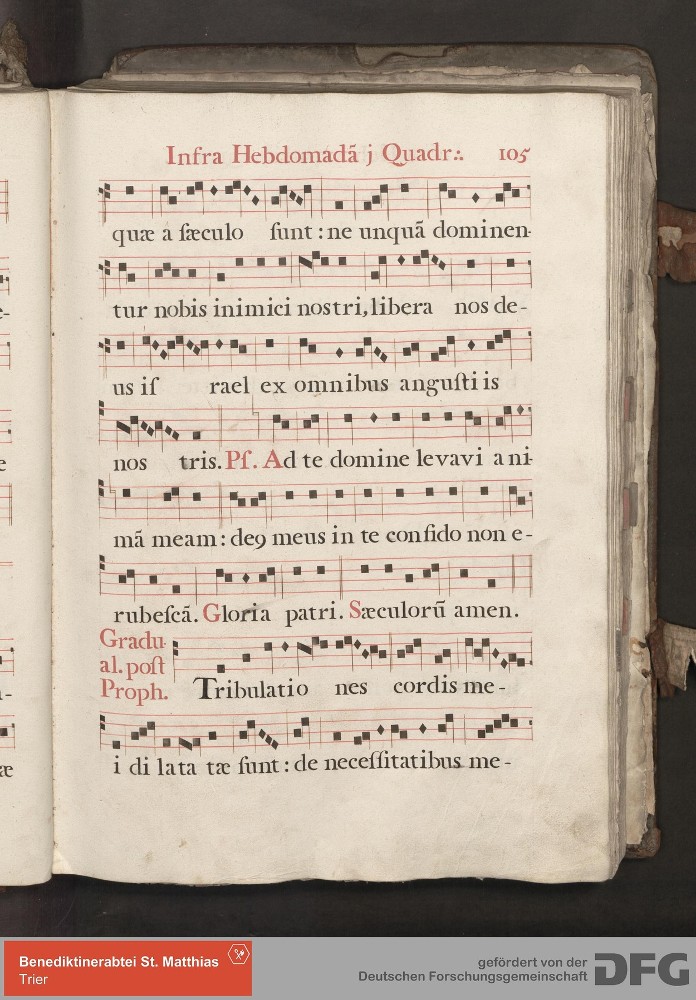 Infra Hebdomadã j Quadr:. 105
quæ à ſæculo ſunt : ne unquã dominen-
tur nobis inimici nostri, libera nos de-
us iſ rael ex omnibus anguſti is
nos tris. Pſ. Ad te domine levavi a ni-
mã meam : deꝯ meus in te confido non e-
rubeſcã. Gloria patri. Sæculorũ amen.
Gradu-
al. poſt
Proph. Tribulatio nes cordis me-
i di lata tæ ſunt : de neceſſitatibus me-
e-
e
a-
æ
Benediktinerabtei St. Matthias
Trier
gefördert von der
Deutschen Forschungsgemeinschaft DFG